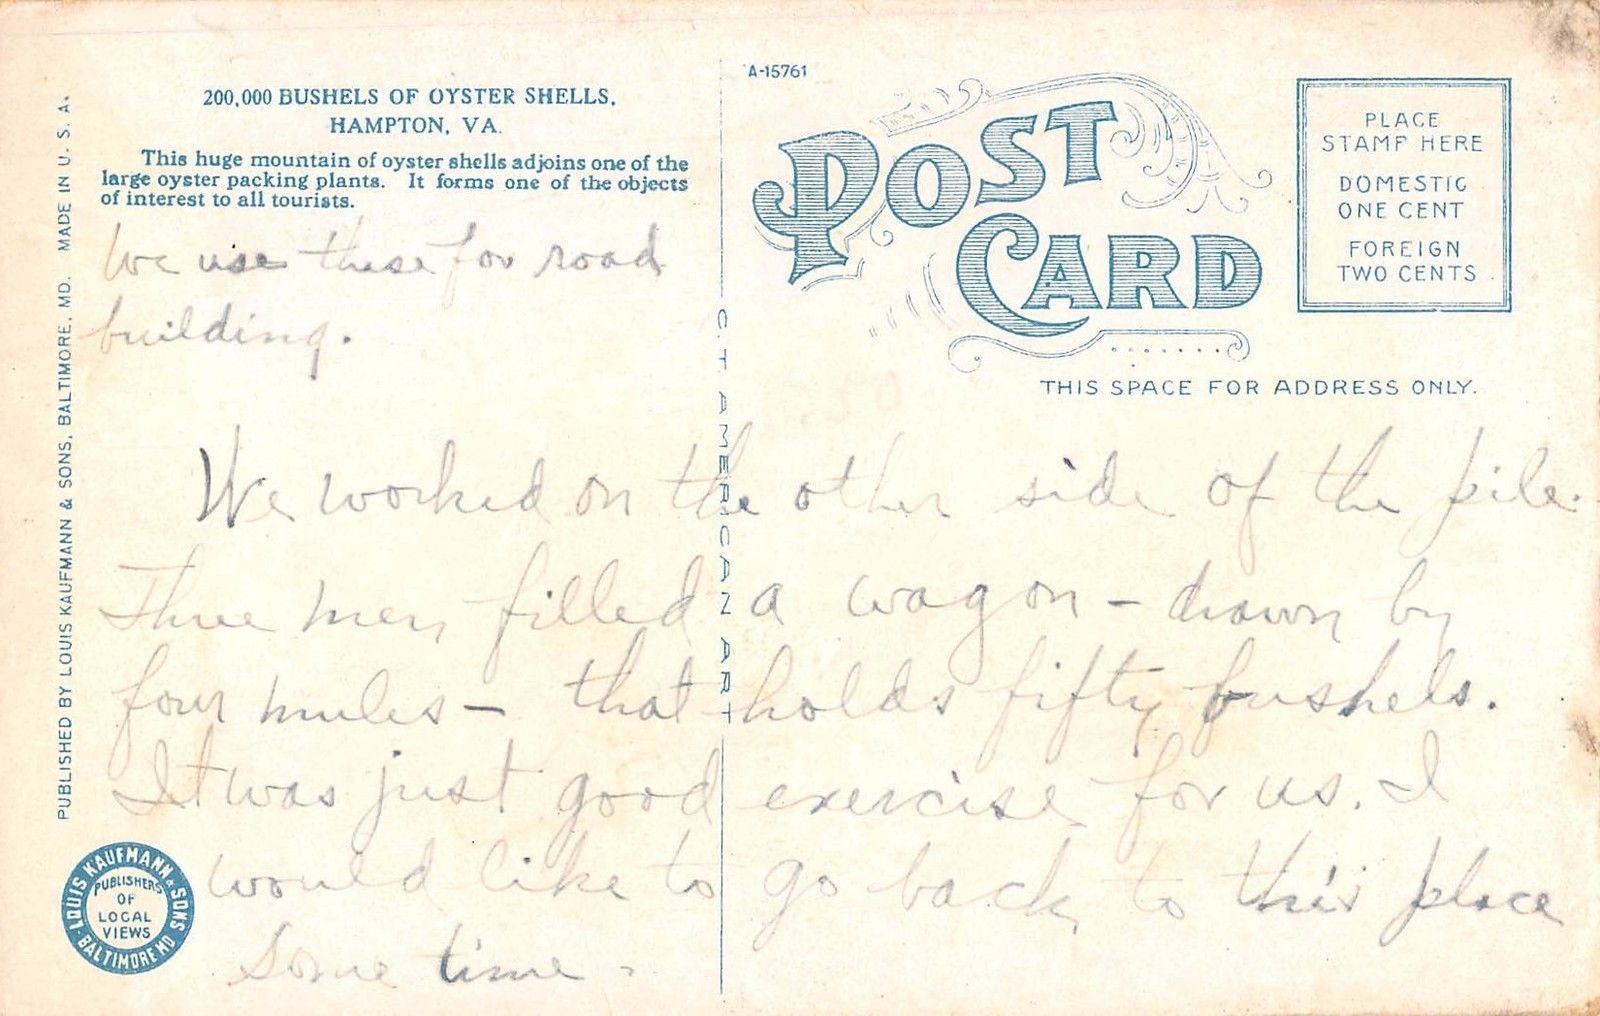 A-15761
200,000 BUSHELS OF OYSTER SHELLS,
HAMPTON, VA.
This huge mountain of oyster shells adjoins one of the
large oyster packing plants. It forms one of the objects
of interest to all tourists.
We use these for road
building.
POST
CARD
PLACE
STAMP HERE
DOMESTIC
ONE CENT
FOREIGN
TWO CENTS
THIS SPACE FOR ADDRESS ONLY.
We worked on the other side of the pile.
Three men filled a wagon – drawn by
four mules – that holds fifty bushels.
It was just good exercise for us. I
would like to go back to this place
some time.
PUBLISHED BY LOUIS KAUFMANN & SONS, BALTIMORE, MD. MADE IN U. S. A.
C. T. AMERICAN ART
LOUIS KAUFMANN & SONS
BALTIMORE MD
PUBLISHERS
OF
LOCAL
VIEWS